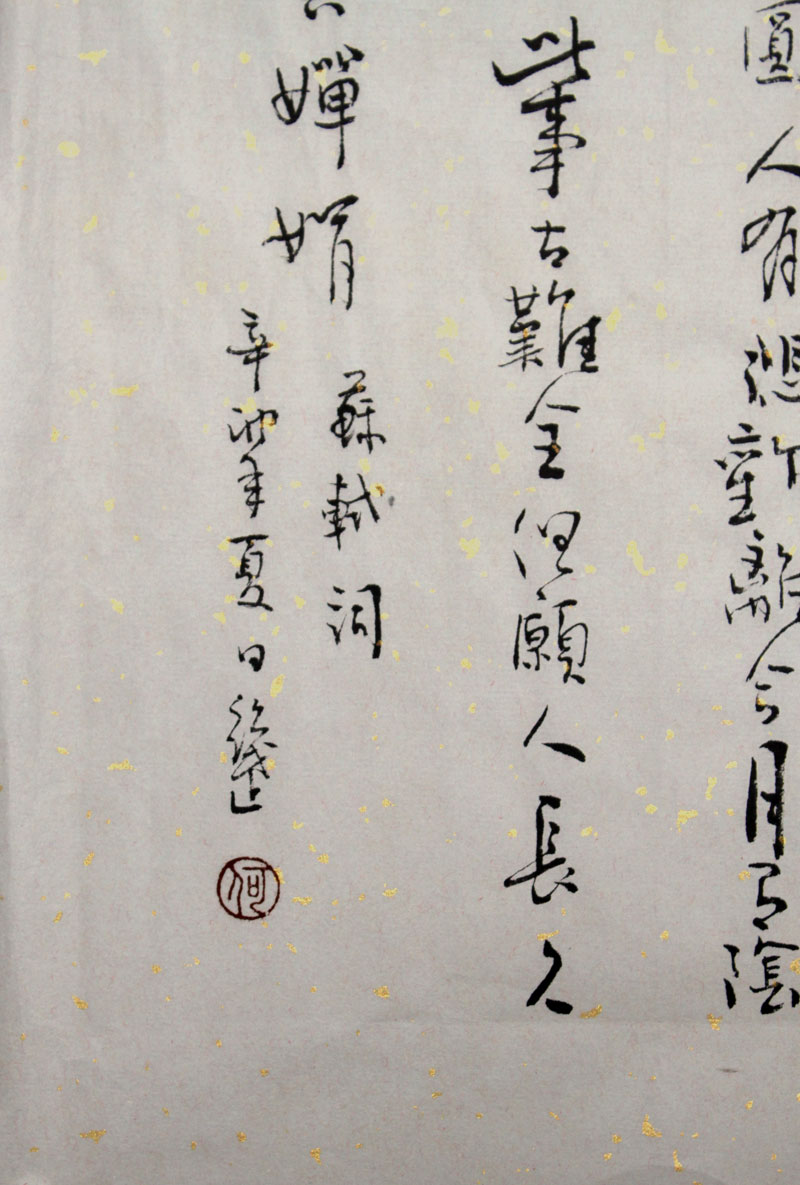 圓人有悲歡離合月有陰
此事古難全但願人長久
嬋娟 蘇軾詞
辛卯年夏日
何